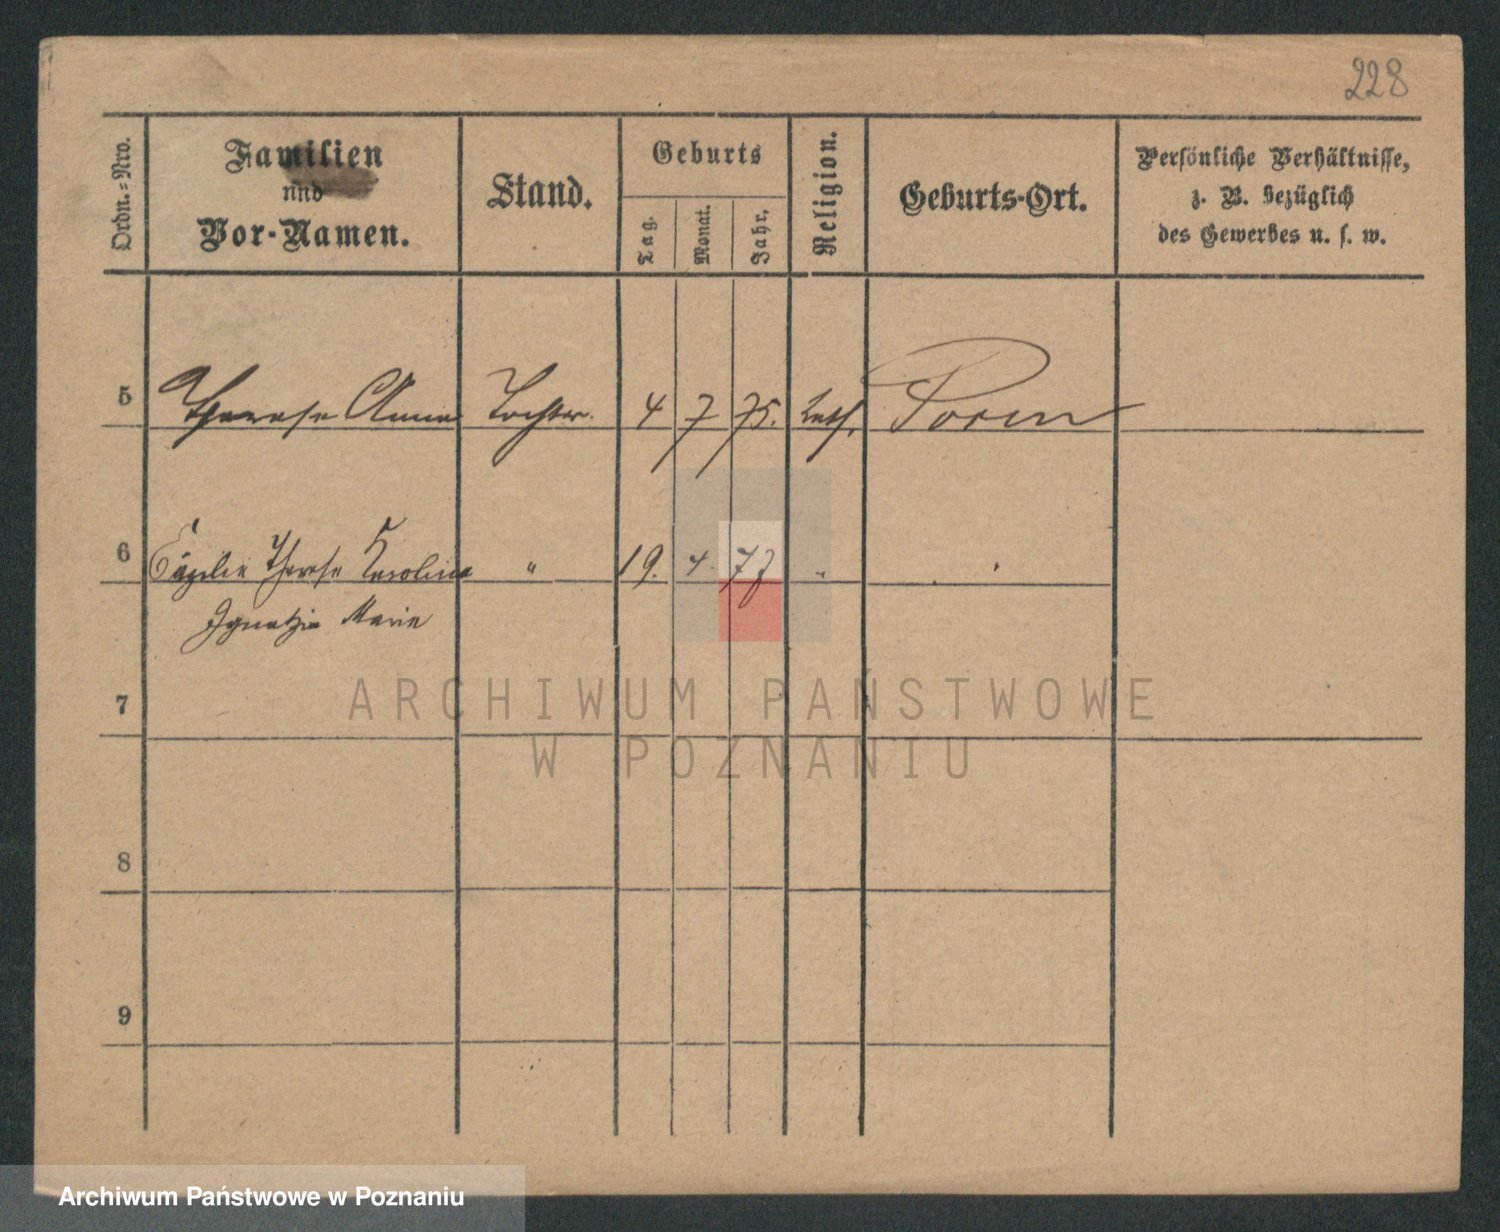 228
Ordn.-Nro.
Familien
und
Vor-Namen.
Stand.
Geburts
Tag.
Monat.
Jahr.
Religion.
Geburts-Ort.
Persönliche Verhältnisse,
z. B. bezüglich
des Gewerbes u. s. w.
5 Therese Anna Tochter. 4 7 75. kath. Posen
6 Cäzilie Therese Karoline " 19. 4. 77 " "
Ignatzia Marie
7
ARCHIWUM PAŃSTWOWE
W POZNANIU
8
9
Archiwum Państwowe w Poznaniu